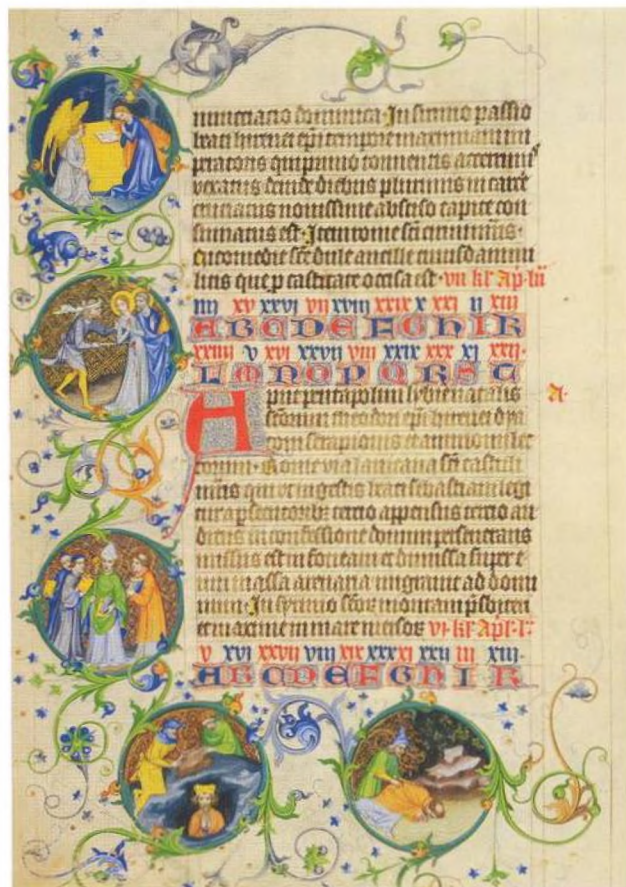 nunciacio dominica. In sirmio passio
beati hirenei epi tempore maximiani im
peratoris qui primo tormentis acerrimis
vexatus deinde diebus plurimis in carce
cruciatus novissime absciso capite con
sumatus est. Item rome sci cirini mris.
nicomedie sce dule ancille cuiusdam mi
litis que p castitate occisa est. vii kl apl lu
iiii xv xxvi vii xviii xxix x xxi ii xiii
A B C D E F G h I K
xxiiii v xvi xxvii viii xxix xxx xi xxii.
L M N O P Q R S T
Aput pentapolim lybie natalis
a.
scorum theodori epi hirenei dya
coni serapionis et ammonis lec
torum. Rome via lavicana sci castuli
mris qui ut in gestis beati sebastiani legi
tur a psecutoribus tercio appensus tercio au
ditus in confessione domini perseverans
missus est in foveam et dimissa super e
um massa arenaria migravit ad domi
num. In syrmio scorum montani psbiteri
et maxime in mare mersorum vi. kl apl. l
v xvi xxvii viii xix xxx xi xxii iii xiii.
A B C D E F G h I K